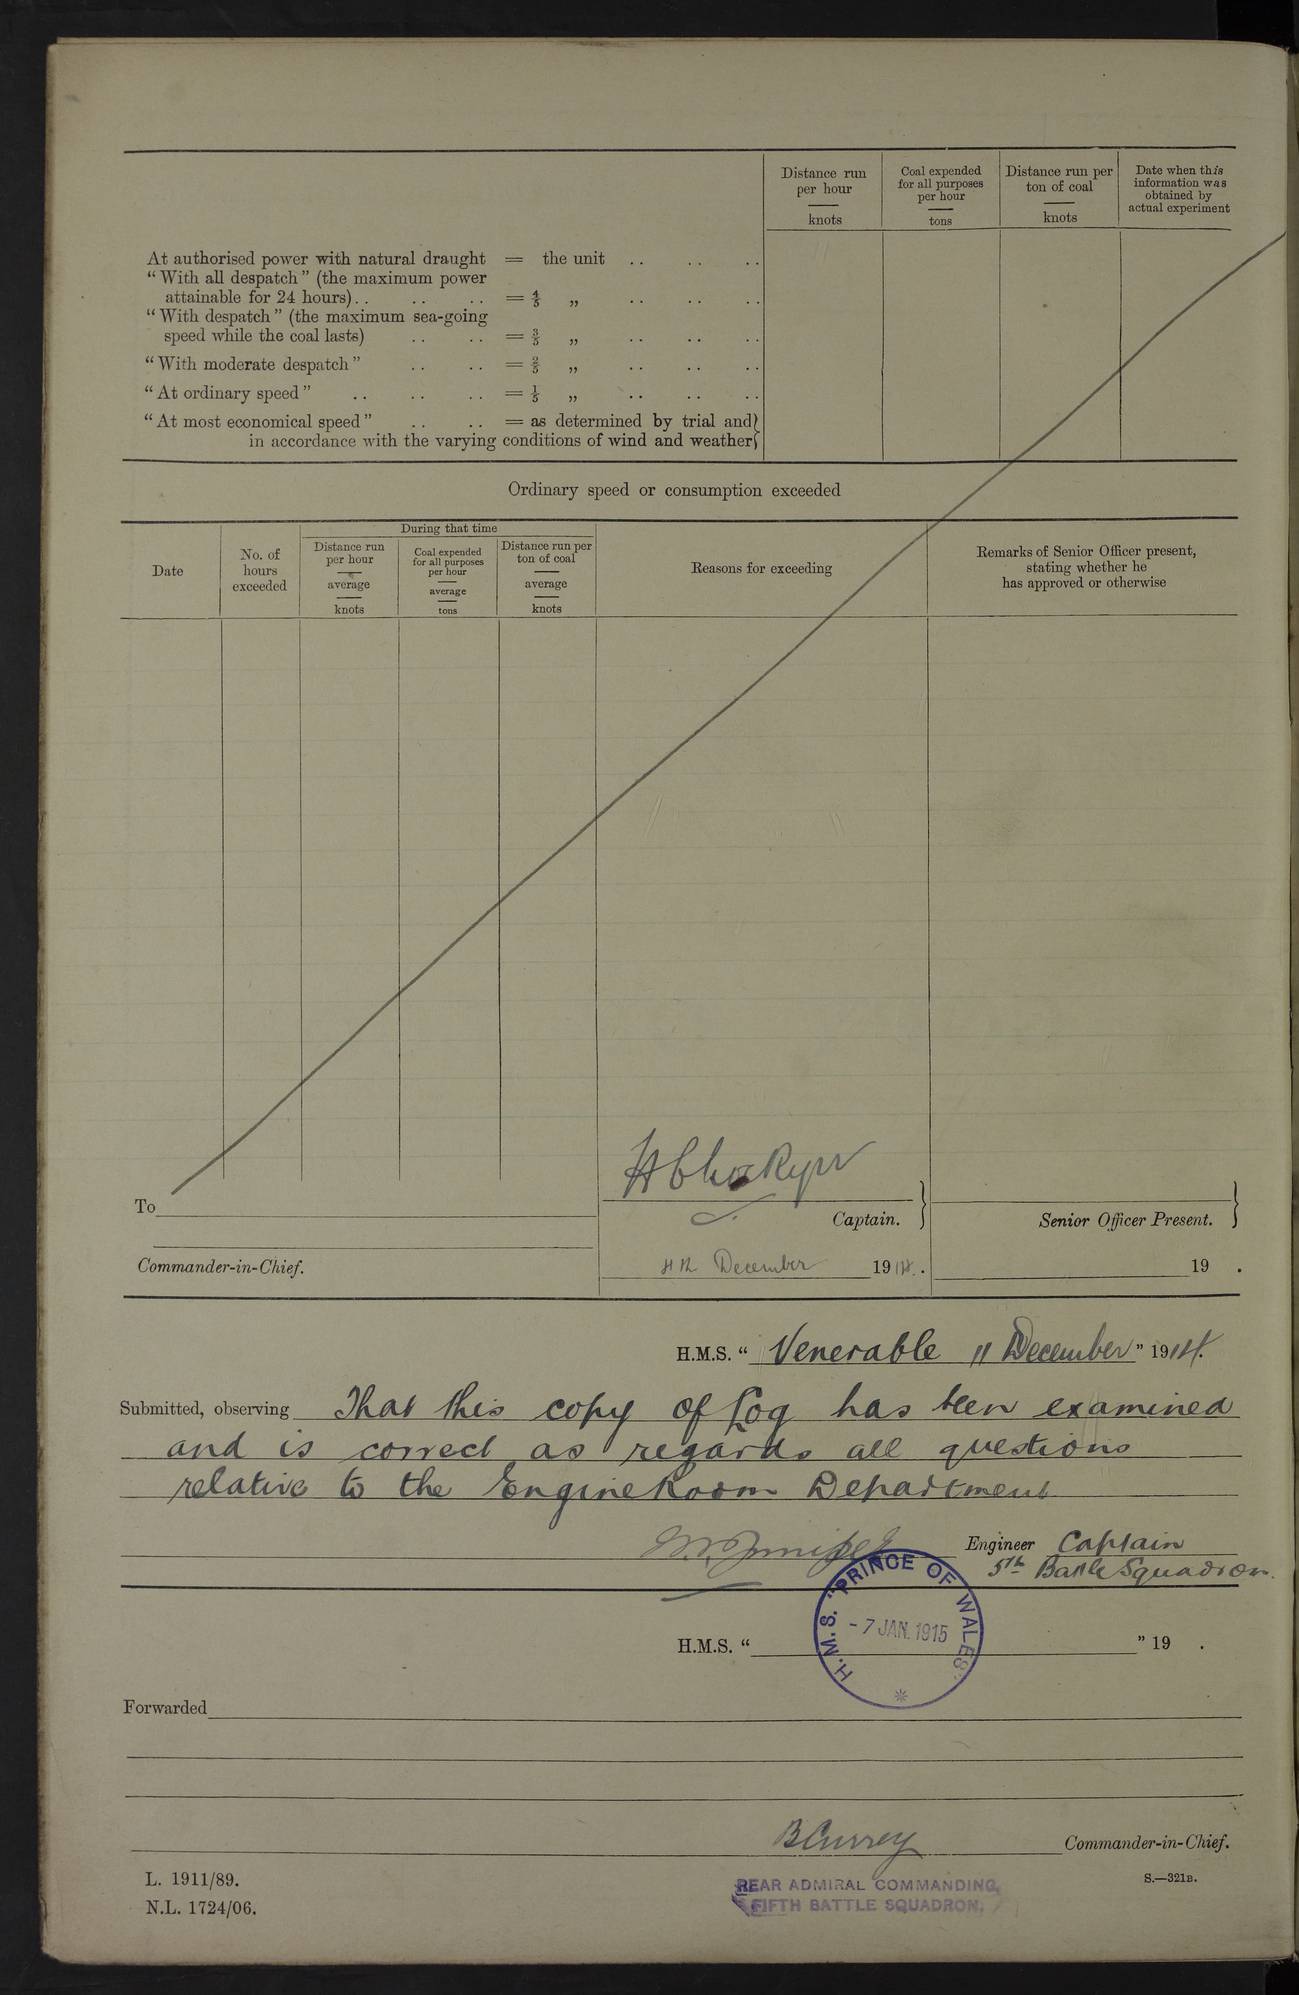 Distance run per hour — knots
Coal expended for all purposes per hour — tons
Distance run per ton of coal — knots
Date when this information was obtained by actual experiment
At authorised power with natural draught = the unit .. .. ..
“With all despatch” (the maximum power
attainable for 24 hours).. .. .. = 4/5 „ .. .. ..
“With despatch” (the maximum sea-going
speed while the coal lasts) .. .. = 3/5 „ .. .. ..
“With moderate despatch” .. .. = 2/5 „ .. .. ..
“At ordinary speed” .. .. .. = 1/5 „ .. .. ..
“At most economical speed” .. .. = as determined by trial and
in accordance with the varying conditions of wind and weather
Ordinary speed or consumption exceeded
Date
No. of hours exceeded
During that time
Distance run per hour — average — knots
Coal expended for all purposes per hour — average — tons
Distance run per ton of coal — average — knots
Reasons for exceeding
Remarks of Senior Officer present, stating whether he has approved or otherwise
To
Captain.
Senior Officer Present.
Commander-in-Chief.
4th December 1914.
19 .
H.M.S. “ Venerable 11 December ” 1914.
Submitted, observing That this copy of Log has been examined
and is correct as regards all questions
relative to the Engine Room Department
Engineer Captain
5th Battle Squadron.
H.M.S. "PRINCE OF WALES"
- 7 JAN. 1915
H.M.S. “ ” 19 .
Forwarded
B Currey Commander-in-Chief.
L. 1911/89.
S.—321B.
REAR ADMIRAL COMMANDING,
FIFTH BATTLE SQUADRON.
N.L. 1724/06.